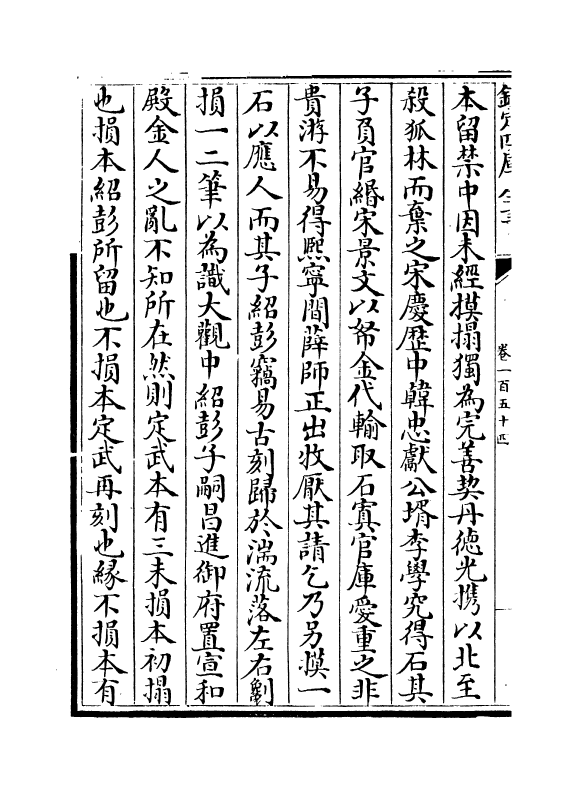 欽定四庫全書
卷一百五十四
本留禁中因未經摸搨獨為完善契丹德光携以北至
殺狐林而棄之宋慶歴中韓忠獻公壻李學究得石其
子負官緡宋景文以帑金代輸取石寘官庫愛重之非
貴游不易得熙寧間薛師正出牧厭其請乞乃另摸一
石以應人而其子紹彭竊易古刻歸於湍流落左右劖
損一二筆以為識大觀中紹彭子嗣昌進御府置宣和
殿金人之亂不知所在然則定武本有三未損本初搨
也損本紹彭所留也不損本定武再刻也緣不損本有